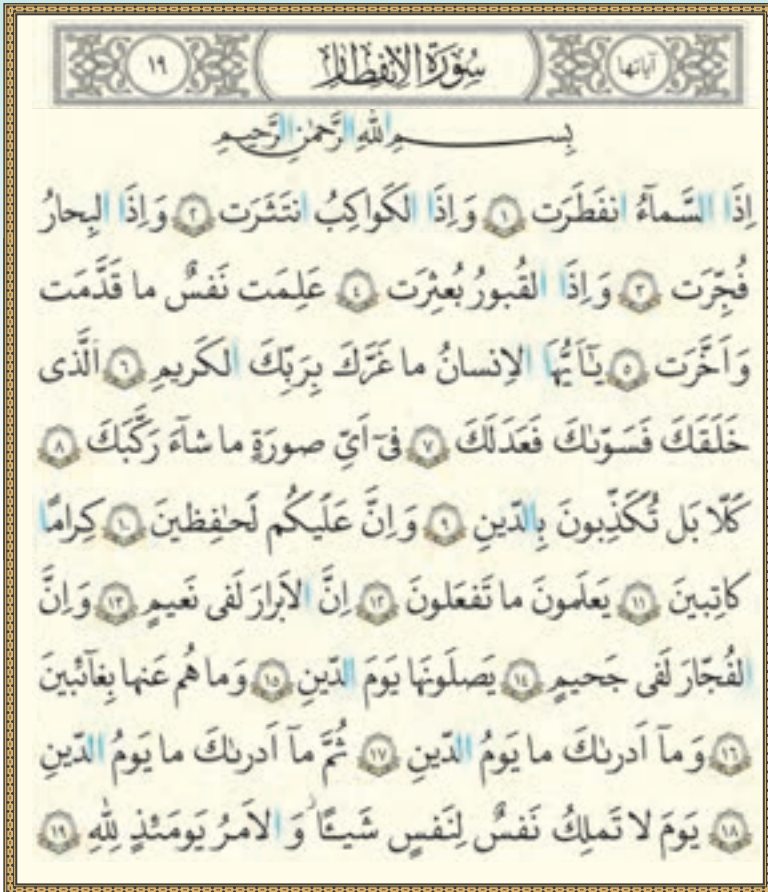 آیاتها سُورَةُ الاِنفِطار ١٩
بِسمِ اللهِ الرَّحمٰنِ الرَّحیمِ
اِذَا السَّمآءُ انفَطَرَت ١ وَ اِذَا الکَواکِبُ انتَثَرَت ٢ وَ اِذَا البِحارُ
فُجِّرَت ٣ وَ اِذَا القُبورُ بُعثِرَت ٤ عَلِمَت نَفسٌ ما قَدَّمَت
وَ اَخَّرَت ٥ یٰٓاَیُّهَا الاِنسانُ ما غَرَّكَ بِرَبِّكَ الکَریمِ ٦ اَلَّذی
خَلَقَكَ فَسَوّىٰكَ فَعَدَلَكَ ٧ فیٓ اَیِّ صورَةٍ ما شآءَ رَکَّبَكَ ٨
کَلّا بَل تُکَذِّبونَ بِالدّینِ ٩ وَ اِنَّ عَلَیکُم لَحٰفِظینَ ١٠ کِرامًا
کاتِبینَ ١١ یَعلَمونَ ما تَفعَلونَ ١٢ اِنَّ الاَبرارَ لَفی نَعیمٍ ١٣ وَ اِنَّ
الفُجّارَ لَفی جَحیمٍ ١٤ یَصلَونَها یَومَ الدّینِ ١٥ وَ ما هُم عَنها بِغآئبینَ
١٦ وَ مآ اَدرىٰكَ ما یَومُ الدّینِ ١٧ ثُمَّ مآ اَدرىٰكَ ما یَومُ الدّینِ
١٨ یَومَ لا تَملِكُ نَفسٌ لِنَفسٍ شَیـًٔا ۖ وَ الاَمرُ یَومَئذٍ لِلّٰهِ ١٩